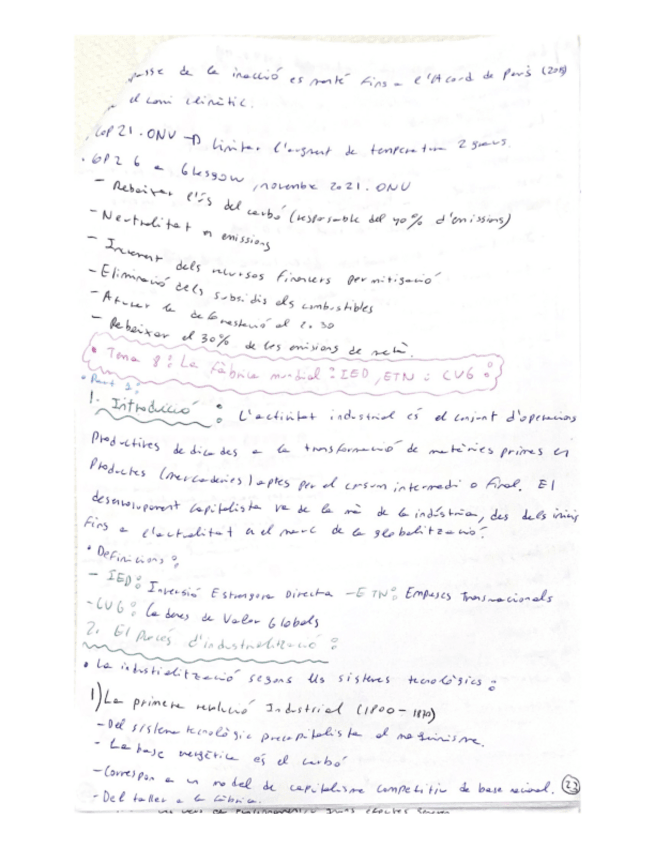 de la inacció es manté fins a l'Acord de París (2015)
el canvi climàtic.
COP21. ONU → Limitar l'augment de temperatura 2 graus.
· COP26 a Glasgow, novembre 2021. ONU
- Rebaixar l'ús del carbó (responsable del 40% d'emissions)
- Neutralitat en emissions
- Increment dels recursos financers per mitigació
- Eliminació dels subsidis als combustibles
- Aturar la deforestació al 2030
- Rebaixar el 30% de les emisions de metà.
• Tema 8: La fàbrica mundial: IED, ETN i CVG:
• Part 1:
1. Introducció: L'activitat industrial és el conjunt d'operacions
productives dedicades a la transformació de matèries primes en
productes (mercaderies) aptes per al consum intermedi o final. El
desenvolupament capitalista va de la mà de la indústria, des dels inicis
fins a l'actualitat en el marc de la globalització.
• Definicions:
- IED: Inversió Estrangera Directa - ETN: Empreses Transnacionals
- CVG: Cadenes de Valor Globals
2. El Procés d'industrialització:
• La industrialització segons els sistemes tecnològics:
1) La primera revolució Industrial (1800-1870)
- Del sistema tecnològic precapitalista al maquinisme.
- La base energètica és el carbó
- Correspon a un model de capitalisme competitiu de base nacional.
- Del taller a la fàbrica.
23